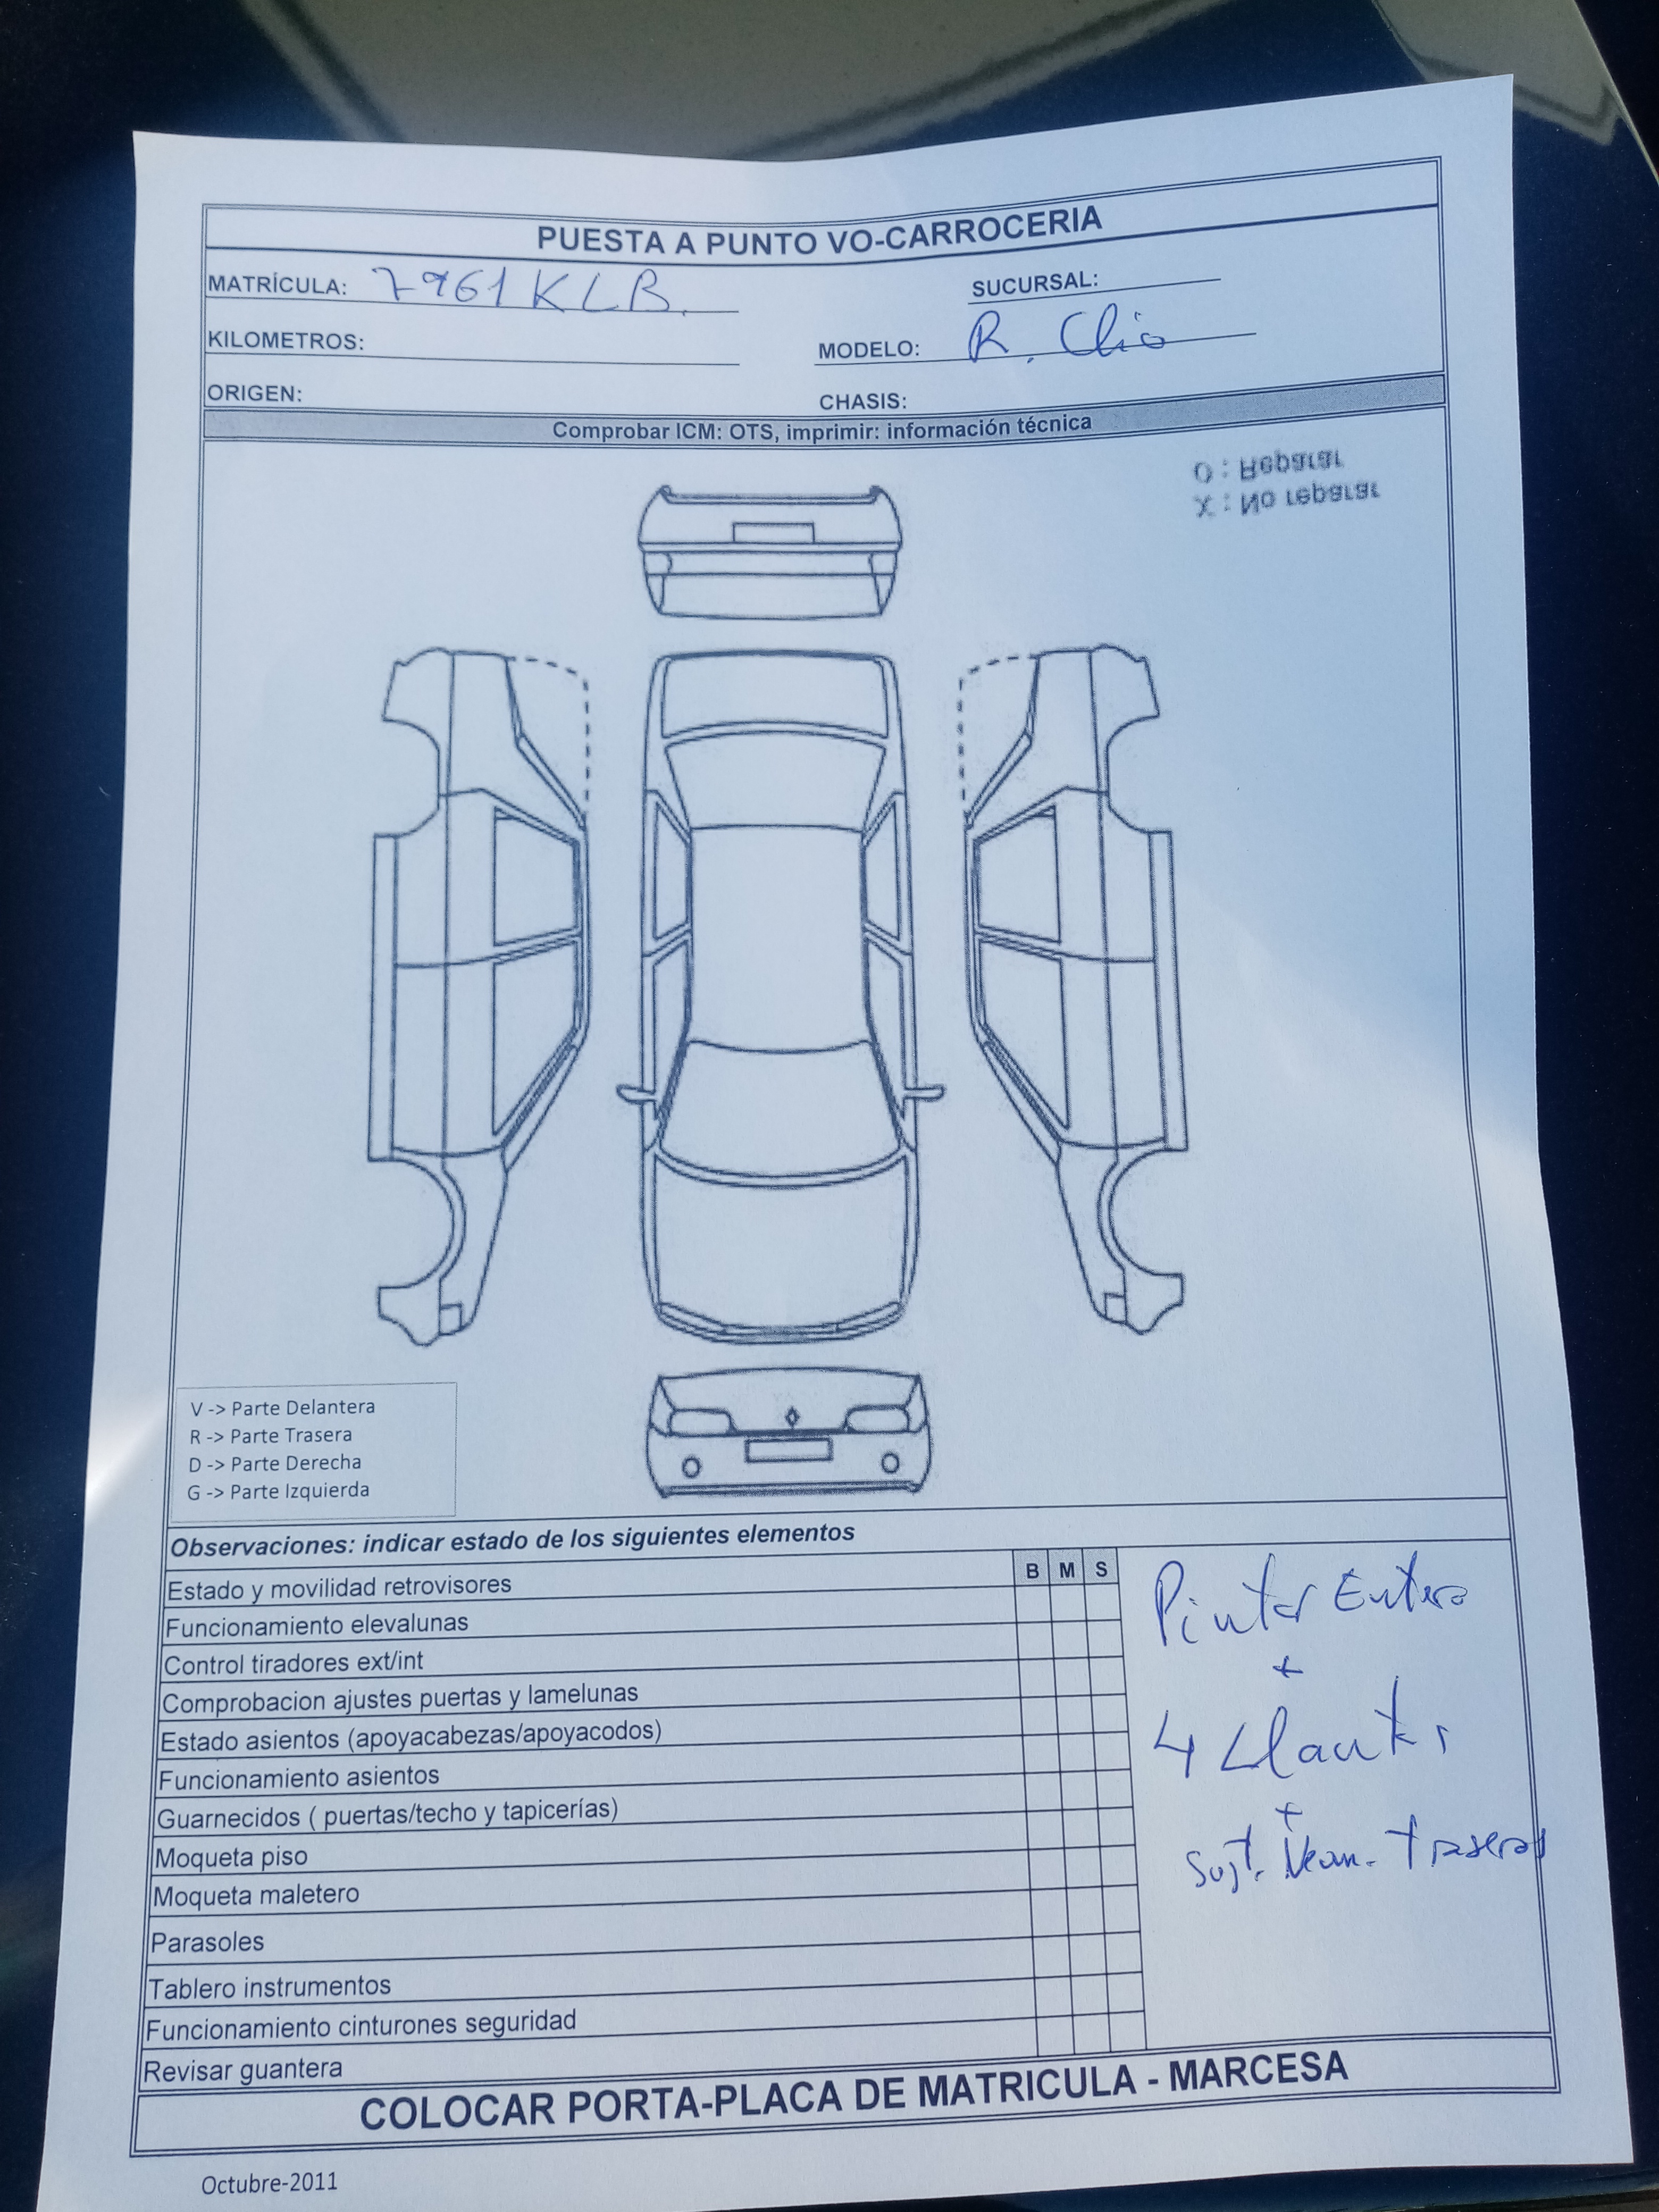 PUESTA A PUNTO VO-CARROCERIA
MATRÍCULA: 7961 KLB.
SUCURSAL:
KILOMETROS:
MODELO: R. Clio
ORIGEN:
CHASIS:
Comprobar ICM: OTS, imprimir: información técnica
O : Reparar
X : No reparar
V -> Parte Delantera
R -> Parte Trasera
D -> Parte Derecha
G -> Parte Izquierda
Observaciones: indicar estado de los siguientes elementos
B M S
Estado y movilidad retrovisores
Funcionamiento elevalunas
Control tiradores ext/int
Comprobacion ajustes puertas y lamelunas
Estado asientos (apoyacabezas/apoyacodos)
Funcionamiento asientos
Guarnecidos ( puertas/techo y tapicerías)
Moqueta piso
Moqueta maletero
Parasoles
Tablero instrumentos
Funcionamiento cinturones seguridad
Revisar guantera
Pintar Entero
+
4 Llantas
+
Sust. Neum. Traseros
COLOCAR PORTA-PLACA DE MATRICULA - MARCESA
Octubre-2011